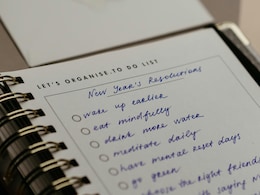 LET'S ORGANISE TO DO LIST
New Year's Resolutions
wake up earlier
eat mindfully
drink more water
meditate daily
have mental reset days
go green
choose the right friends
saying No